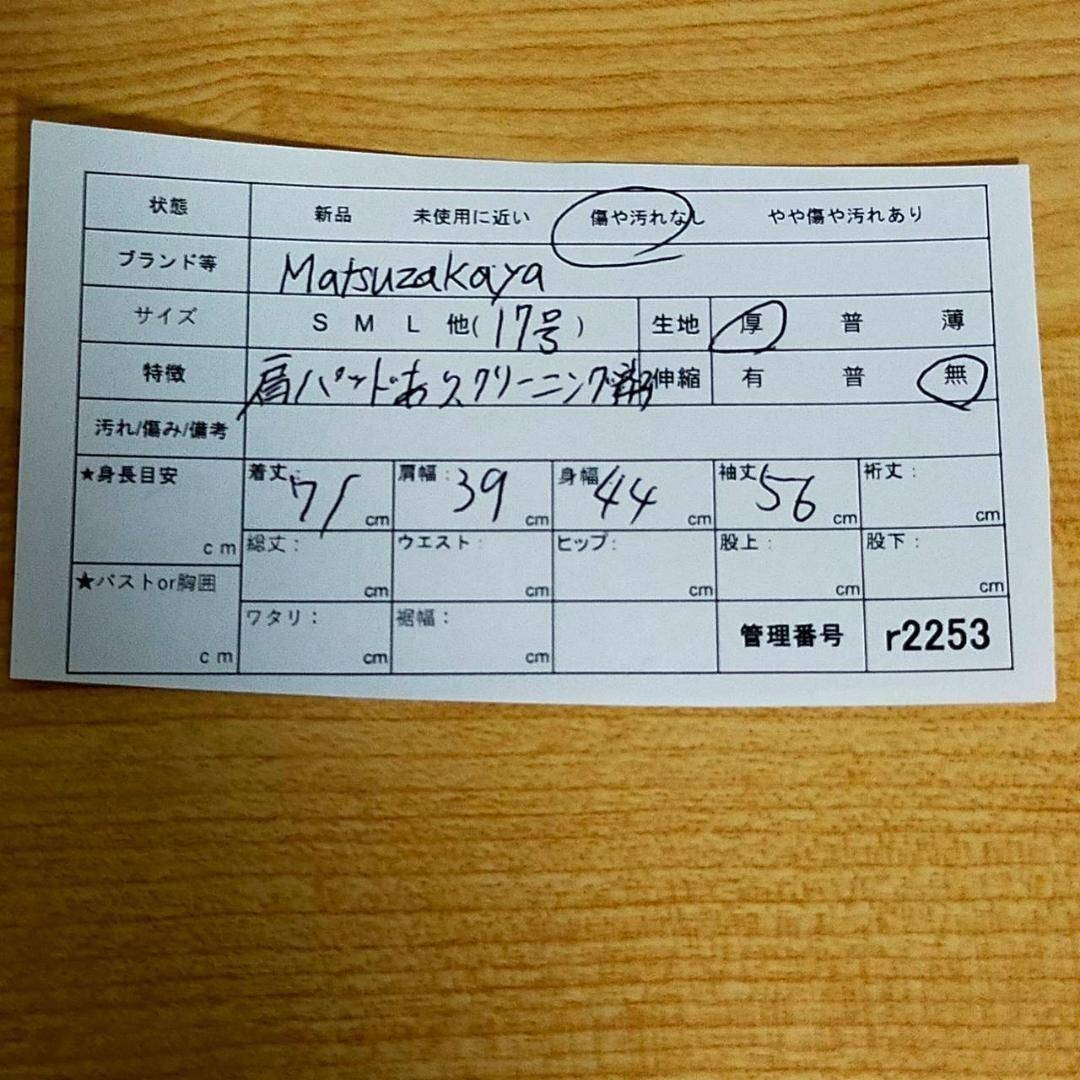 状態 新品 未使用に近い 傷や汚れなし やや傷や汚れあり
ブランド等 Matsuzakaya
サイズ S M L 他(17号) 生地 厚 普 薄
特徴 肩パッドあり、クリーニング済 伸縮 有 普 無
汚れ/傷み/備考
★身長目安 cm 着丈: 71 cm 肩幅: 39 cm 身幅 44 cm 袖丈 56 cm 裄丈: cm
総丈: cm ウエスト: cm ヒップ: cm 股上: cm 股下: cm
★バストor胸囲 cm ワタリ: cm 裾幅: cm 管理番号 r2253